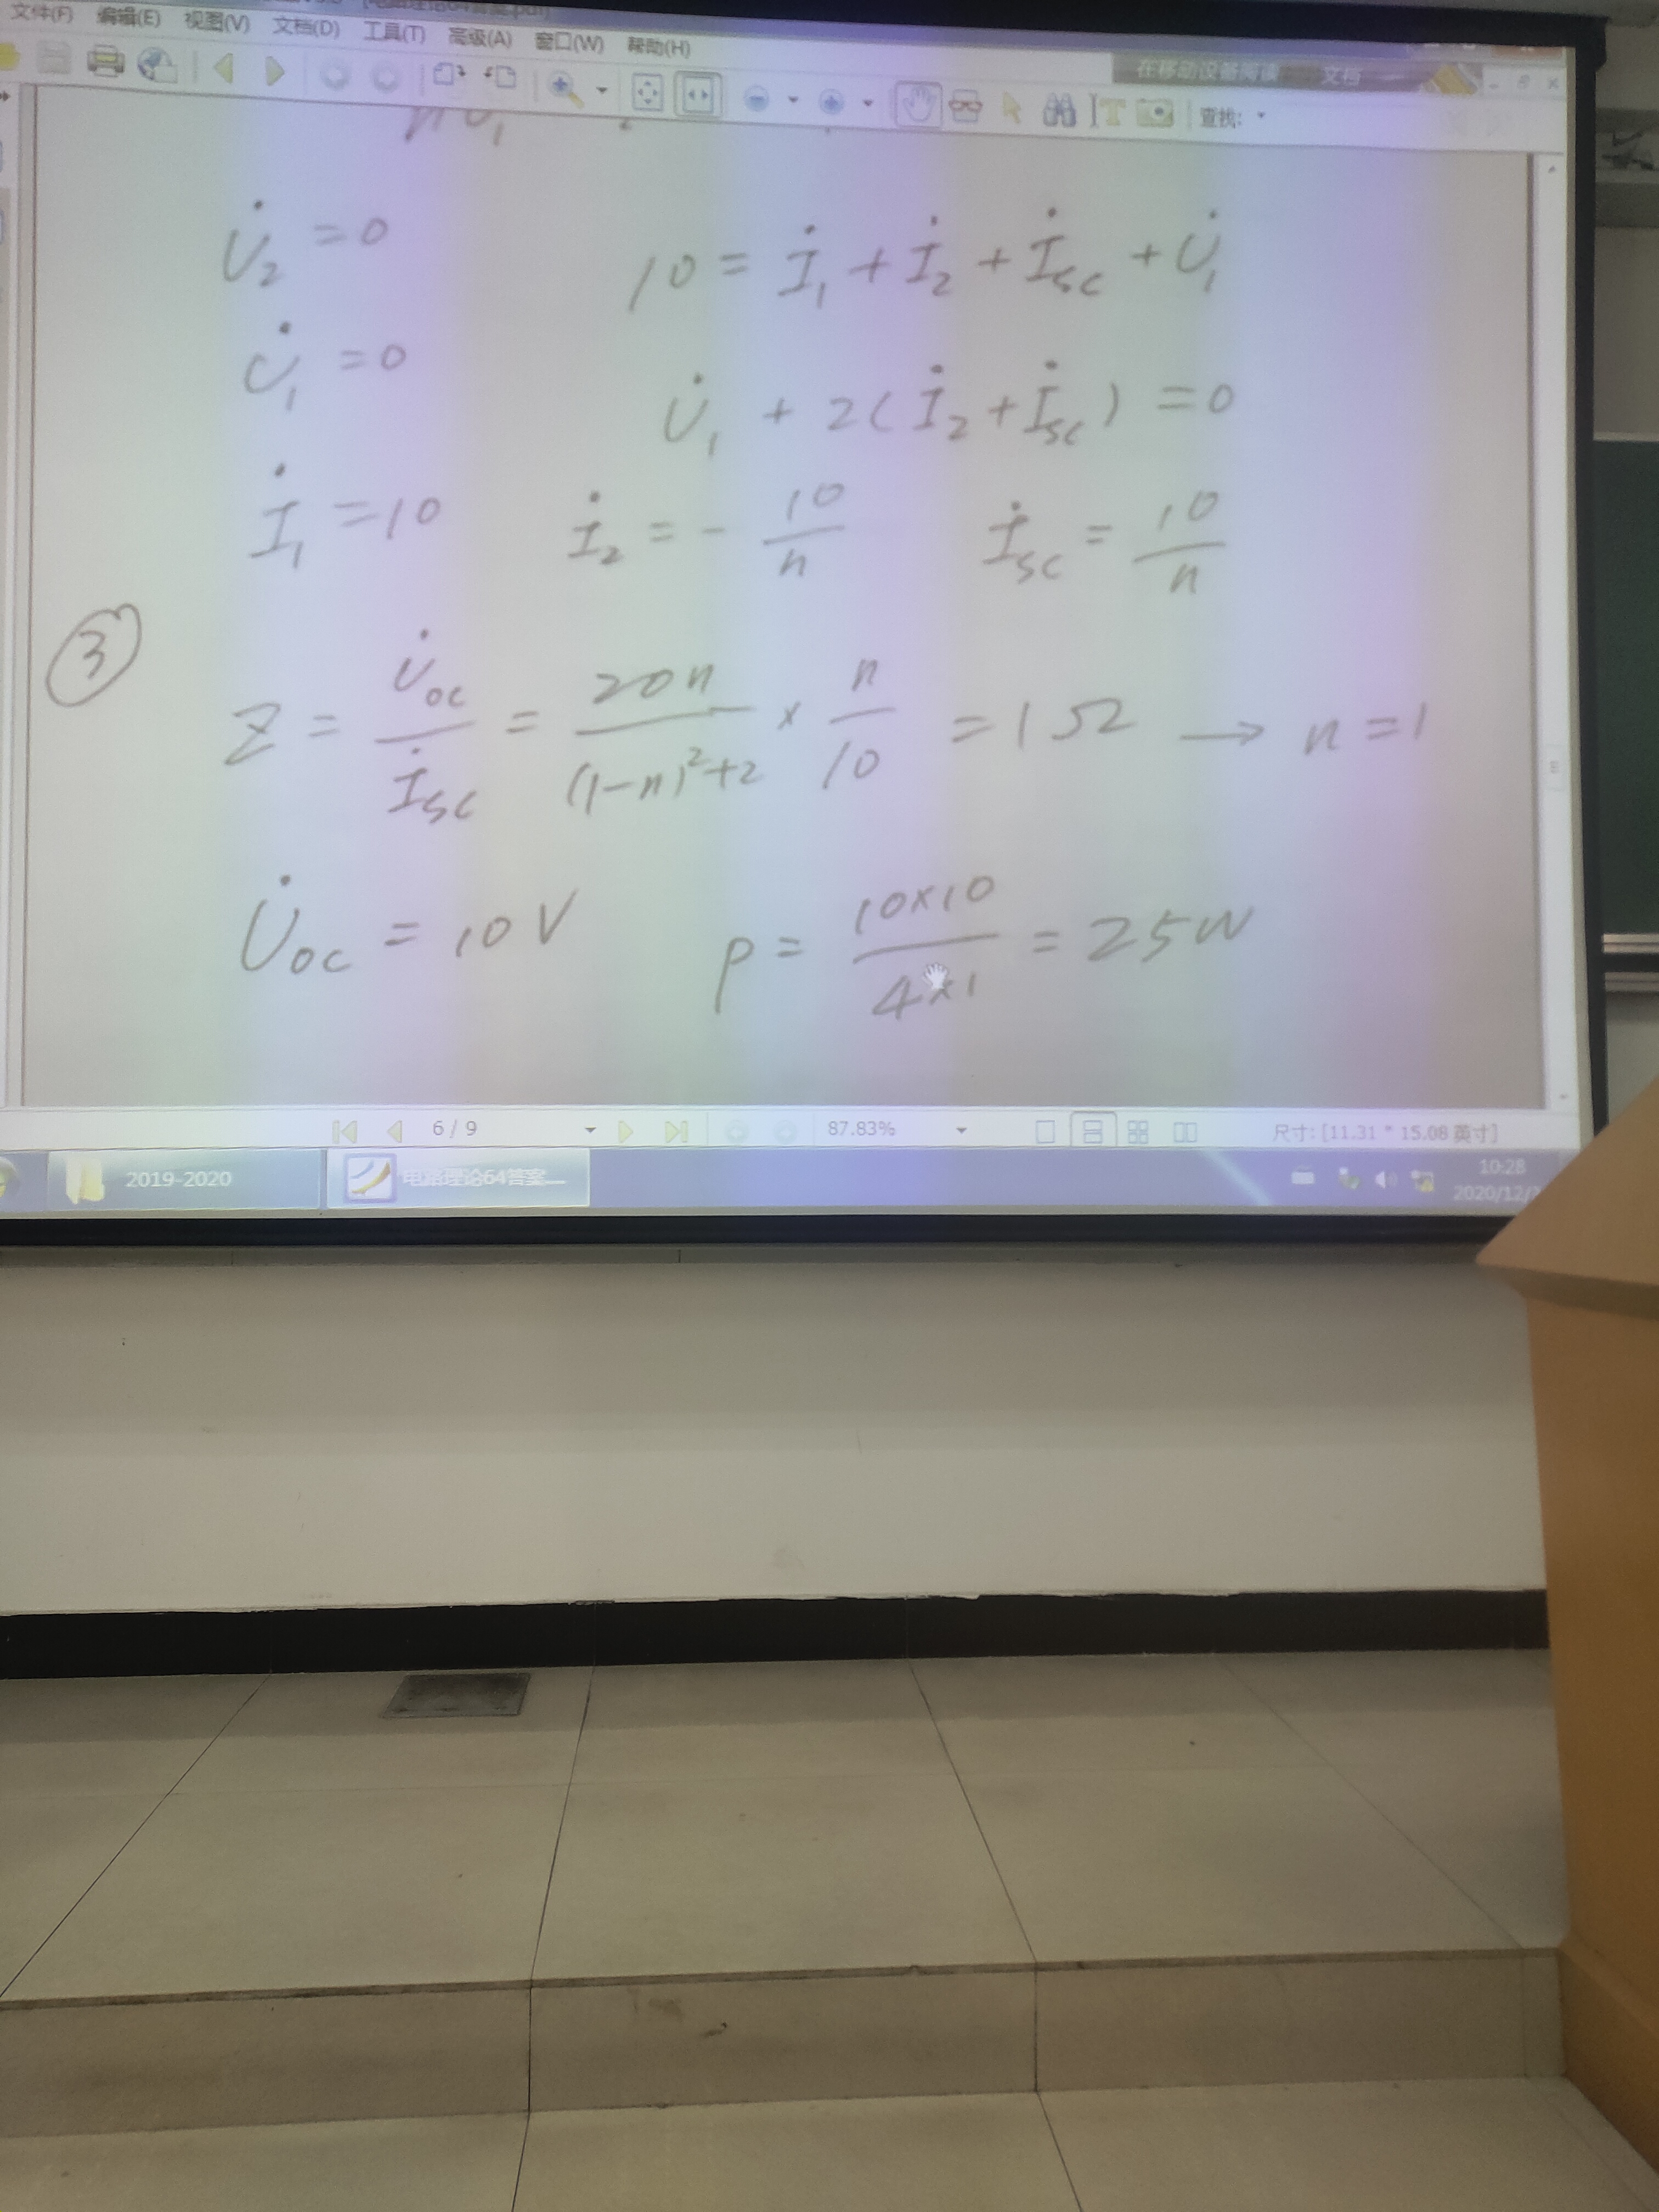 文件(F) 编辑(E) 视图(V) 文档(D) 工具(T) 高级(A) 窗口(W) 帮助(H)
在移动设备阅读 文档
查找:
U̇₂ = 0
10 = İ₁ + İ₂ + İsc + U̇₁
U̇₁ = 0
U̇₁ + 2(İ₂ + İsc) = 0
İ₁ = 10 İ₂ = - 10/n İsc = 10/n
③
Z = U̇oc/İsc = 20n/((1-n)²+2) × n/10 = 1Ω → n = 1
U̇oc = 10V P = 10×10/4×1 = 25W
6 / 9 87.83% 尺寸: [11.31 * 15.08 英寸]
2019-2020 电路理论64答案... 10:28
2020/12/